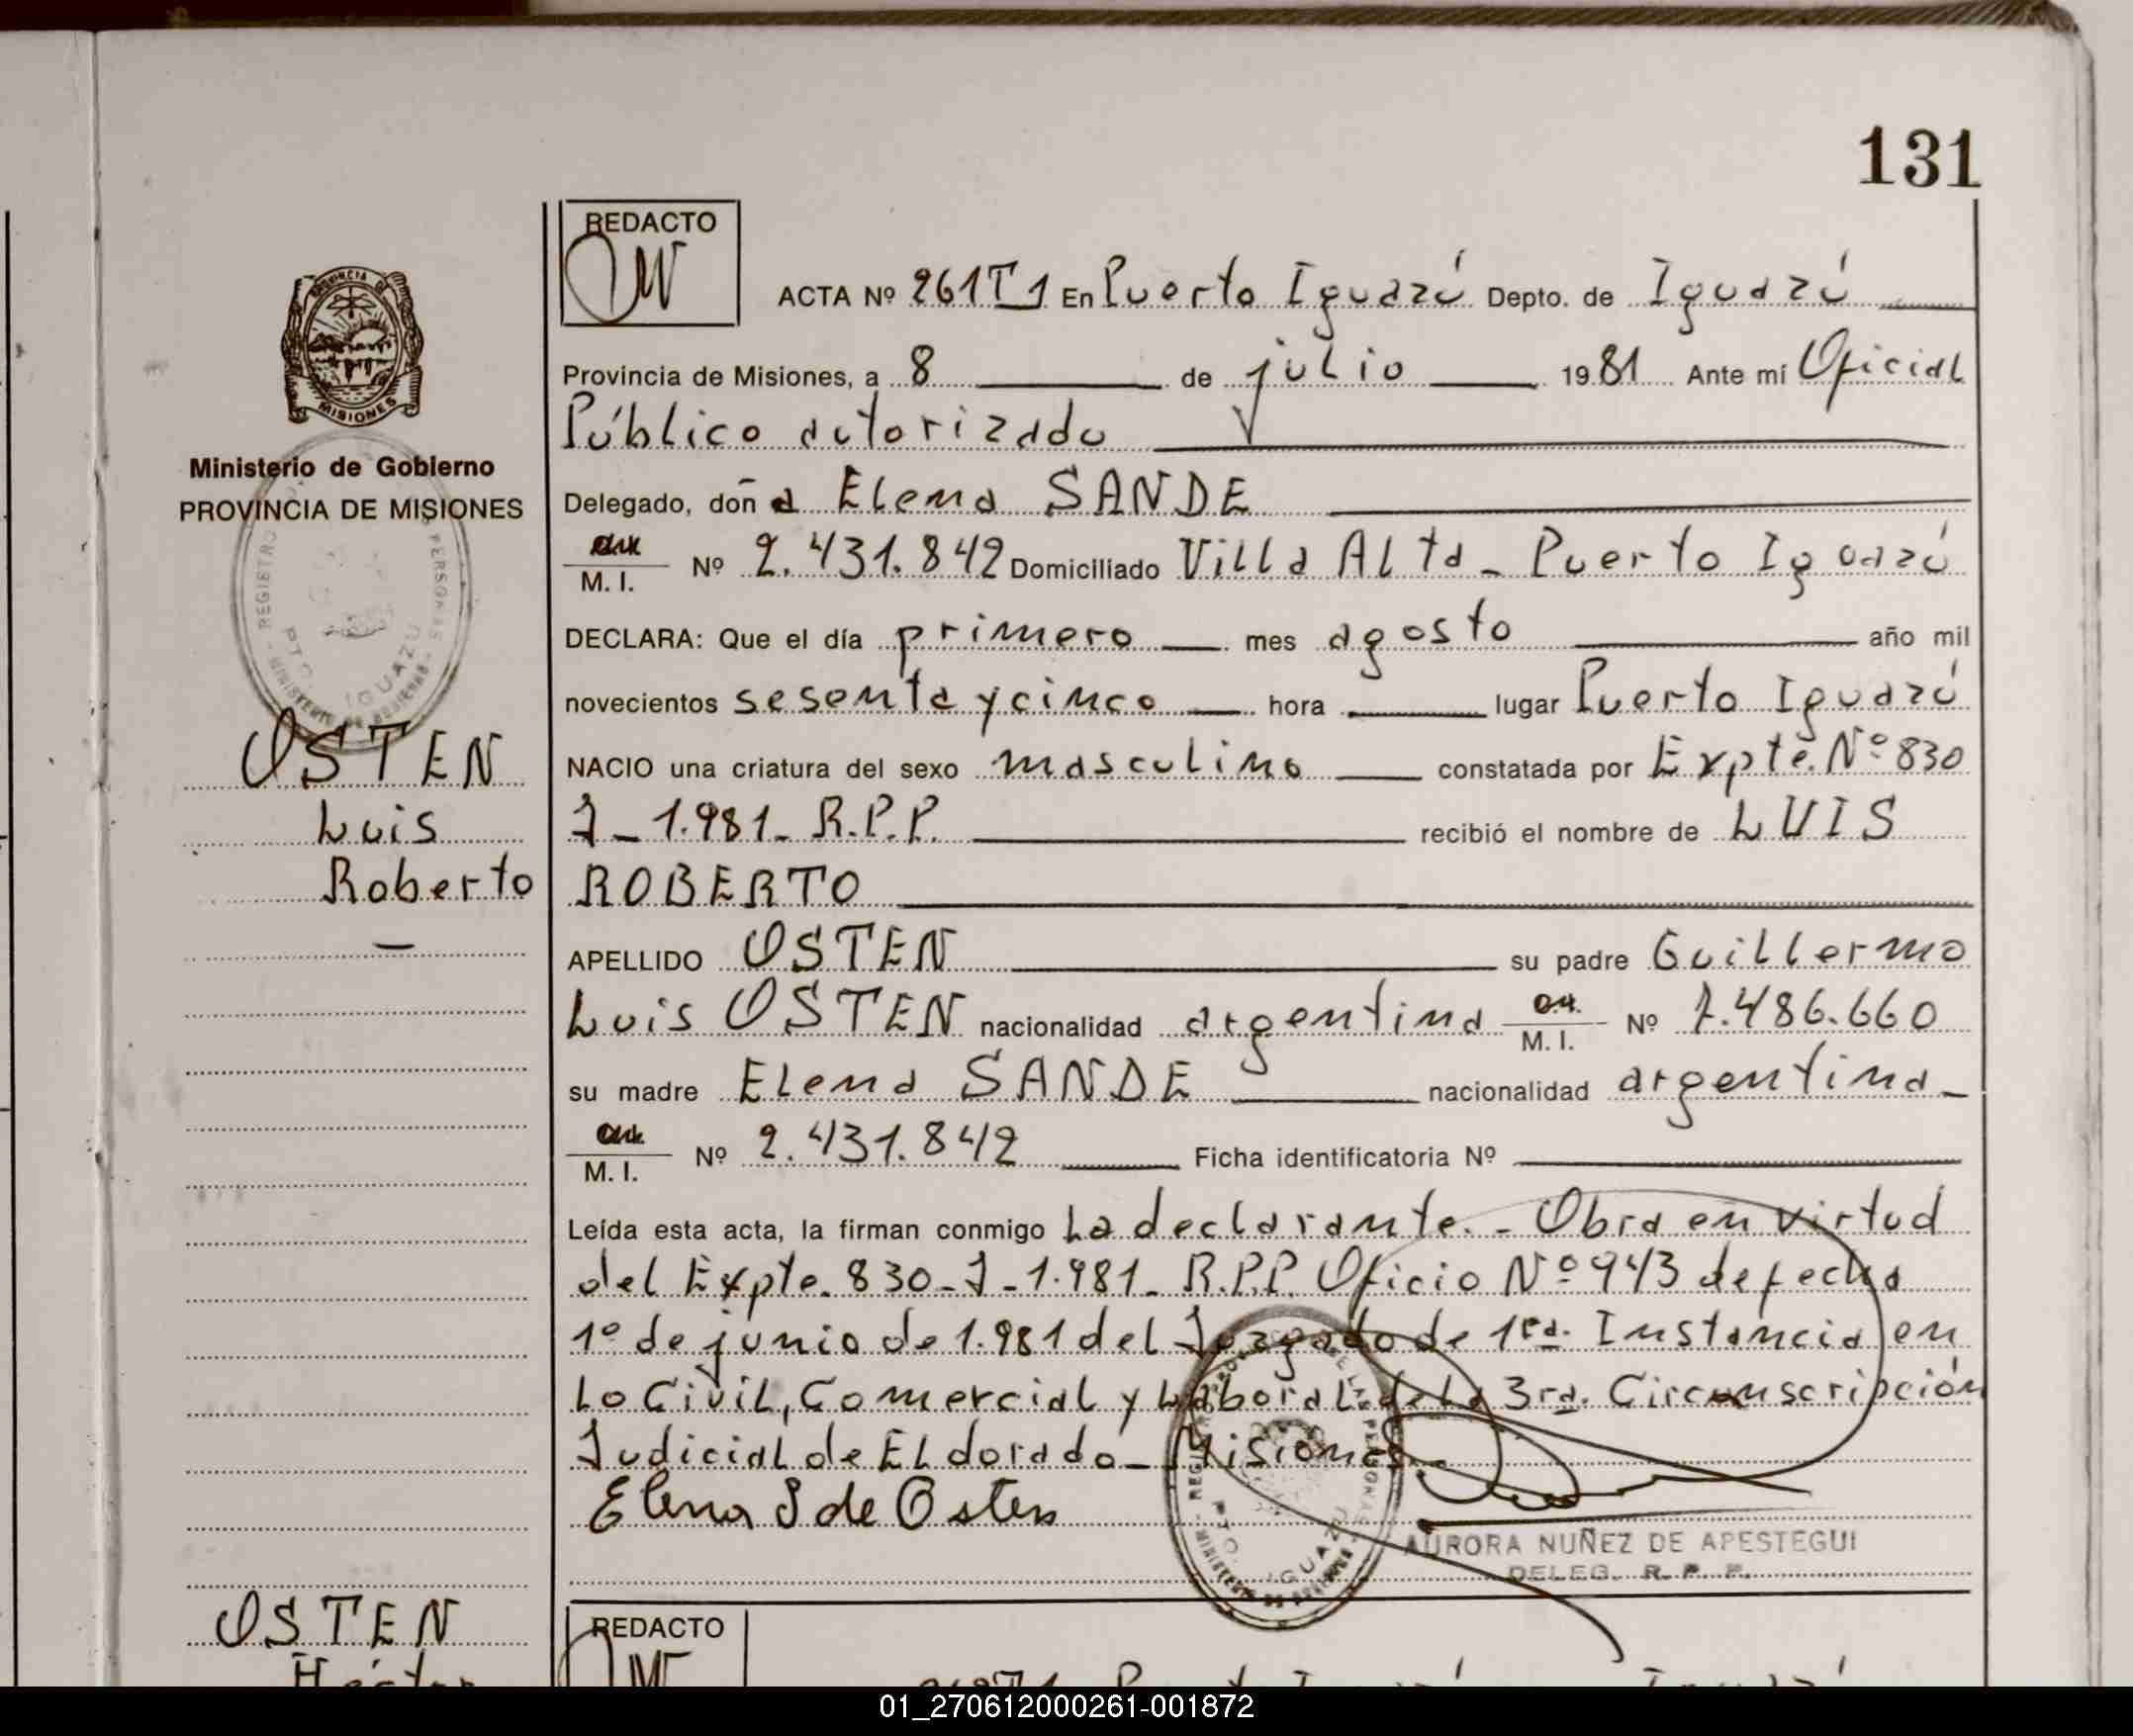 131
REDACTO
ACTA Nº 261 T 1 En Puerto Iguazú Depto. de Iguazú
Provincia de Misiones, a 8 de julio 1981 Ante mí Oficial
Público autorizado
Delegado, doña Elena SANDE
M. I. Nº 2.431.842 Domiciliado Villa Alta - Puerto Iguazú
DECLARA: Que el día primero mes agosto año mil
novecientos sesenta y cinco hora lugar Puerto Iguazú
NACIO una criatura del sexo masculino constatada por Expte. Nº 830
J - 1.981 - R.P.P. recibió el nombre de LUIS
ROBERTO
APELLIDO OSTEN su padre Guillermo
Luis OSTEN nacionalidad argentina M. I. Nº 7.486.660
su madre Elena SANDE nacionalidad argentina -
M. I. Nº 2.431.842 Ficha identificatoria Nº
Leída esta acta, la firman conmigo La declarante. - Obra en virtud
del Expte. 830 - J - 1.981 - R.P.P. Oficio Nº 943 de fecha
1º de junio de 1.981 del Juzgado de 1ra. Instancia en
Lo Civil, Comercial y Laboral de la 3ra. Circunscripción
Judicial de Eldorado - Misiones.
Elena S de Osten
AURORA NUÑEZ DE APESTEGUI
DELEG. R. P. P.
PROVINCIA
MISIONES
Ministerio de Gobierno
PROVINCIA DE MISIONES
REGISTRO PERSONAS
PTO. IGUAZU
OSTEN
Luis
Roberto
OSTEN
Héctor
REDACTO
01_270612000261-001872